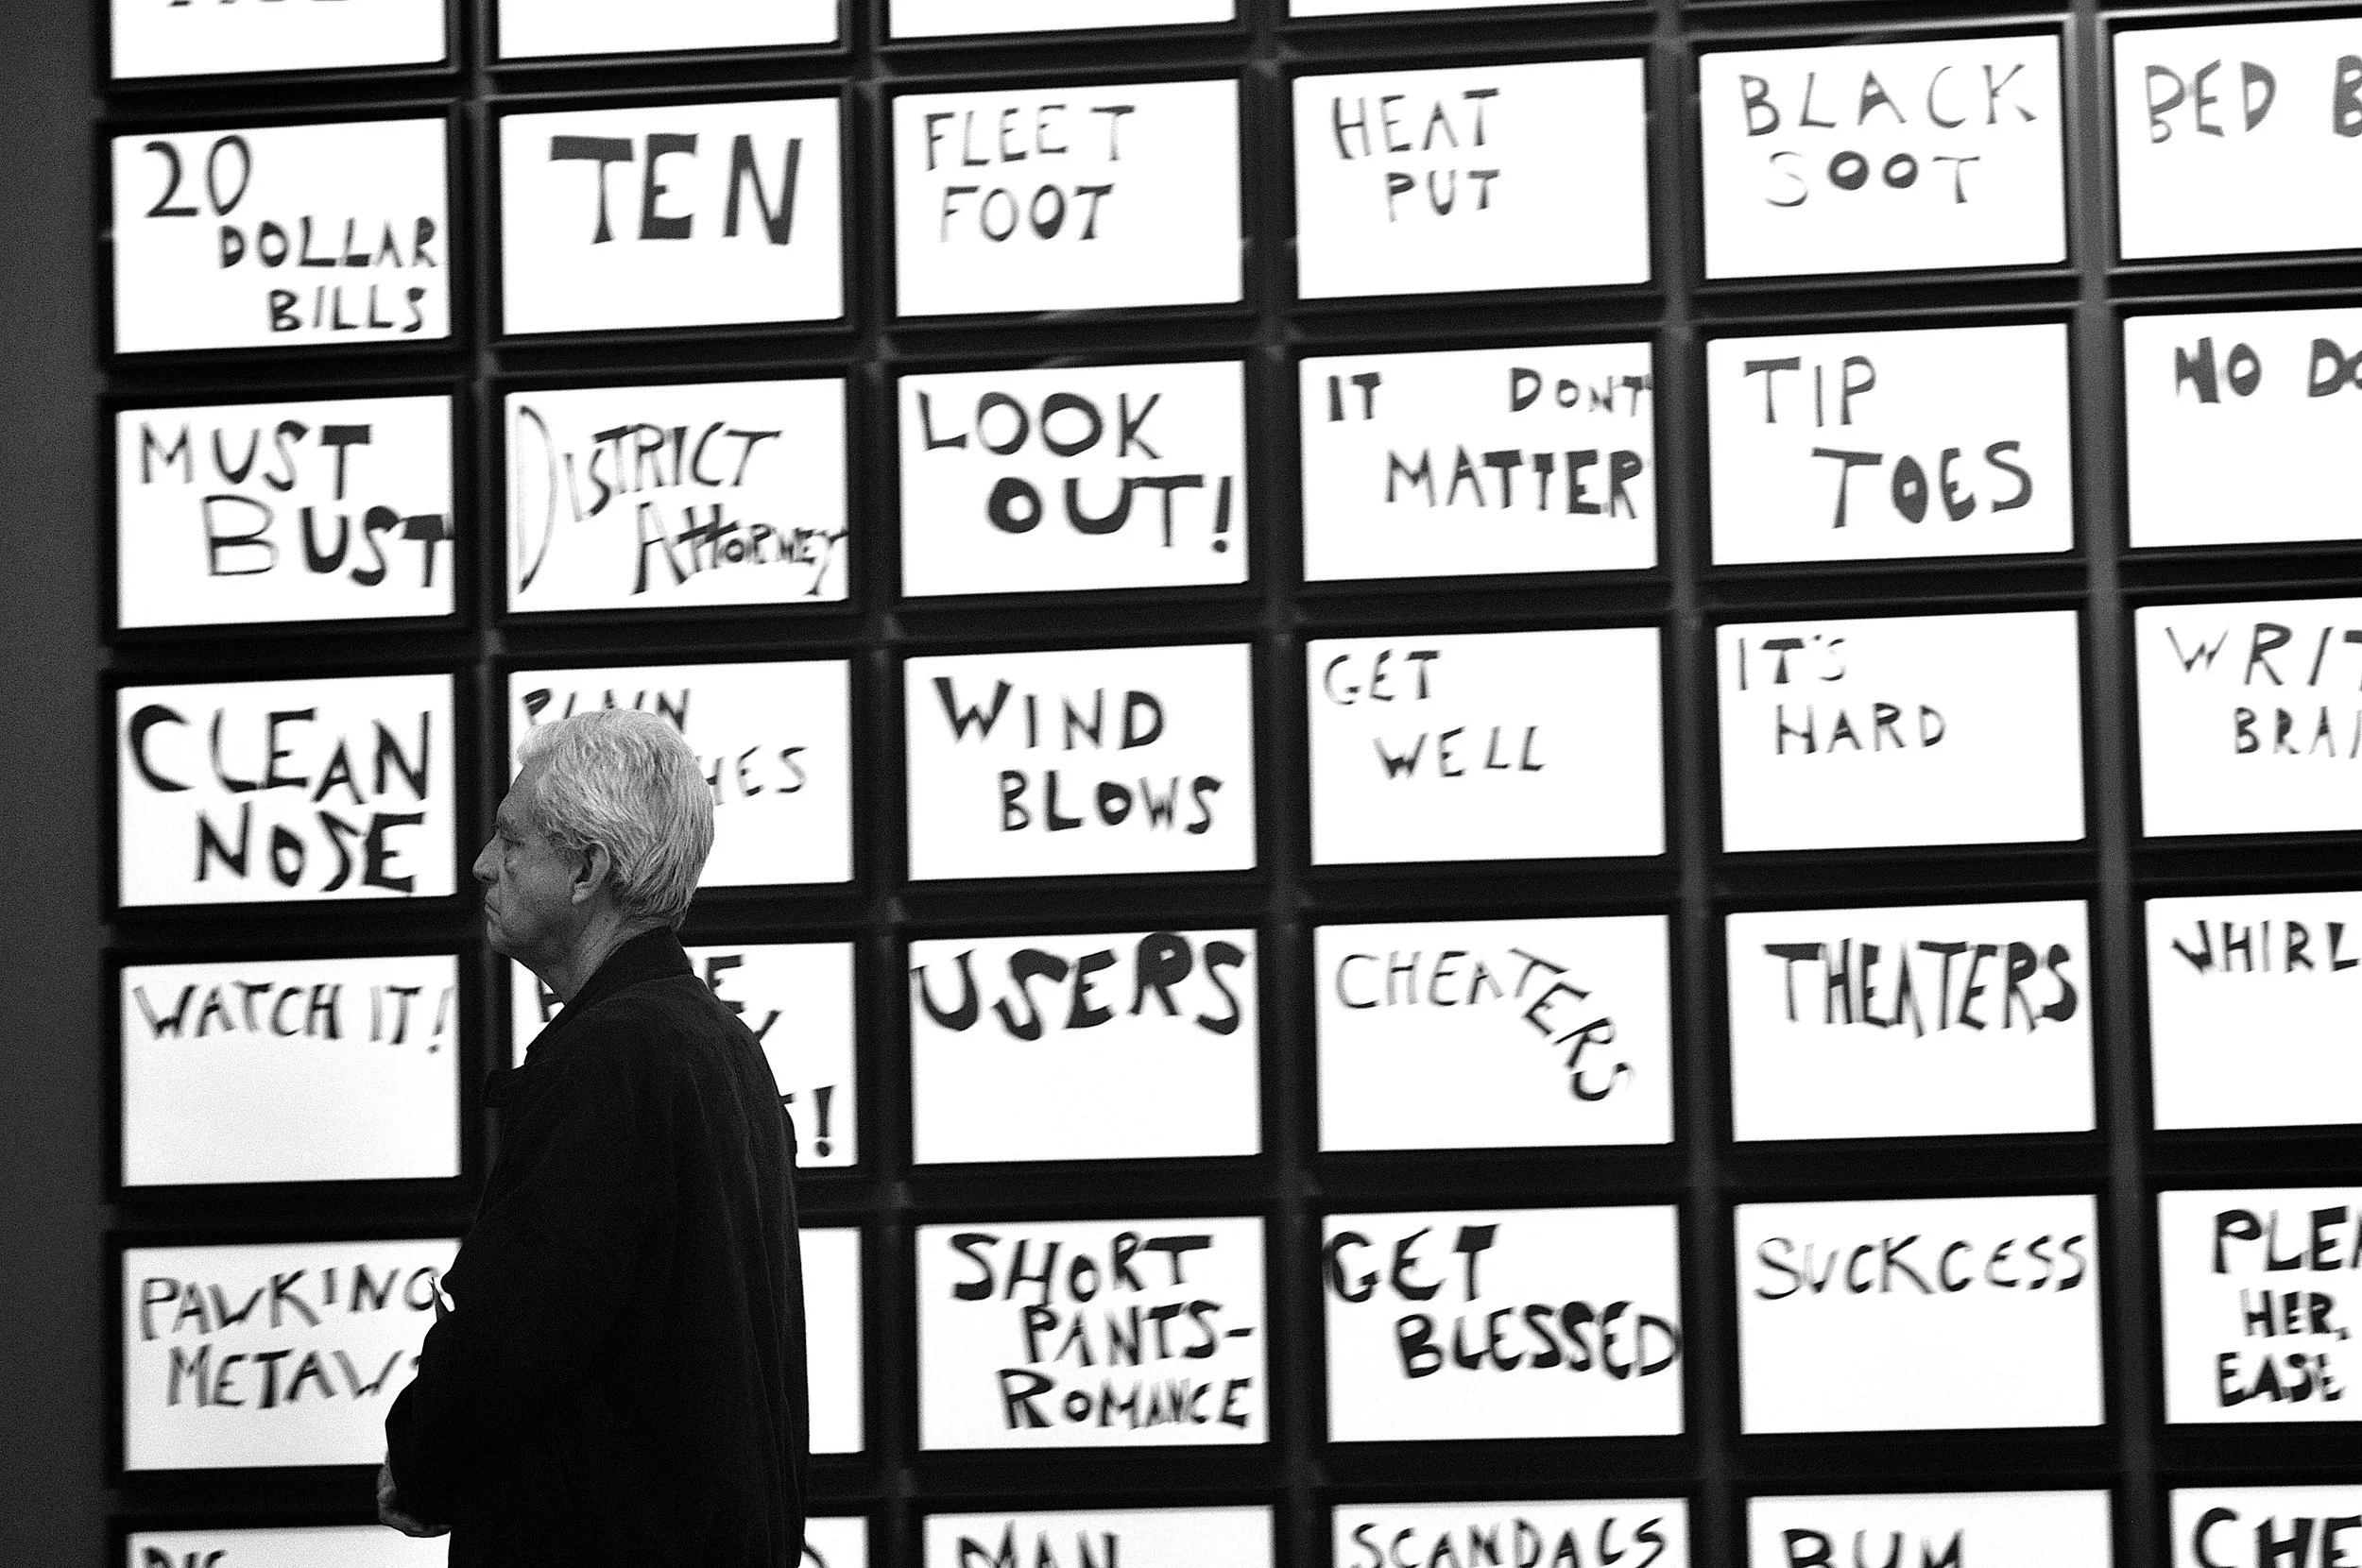 20
DOLLAR
BILLS
TEN
FLEET
FOOT
HEAT
PUT
BLACK
SOOT
BED
MUST
BUST
DISTRICT
ATTORNEY
LOOK
OUT!
IT DONT
MATTER
TIP
TOES
NO
CLEAN
NOSE
PLAIN
WIND
BLOWS
GET
WELL
IT'S
HARD
WATCH IT!
USERS
CHEATERS
THEATERS
PAWKING
METAW
SHORT
PANTS-
ROMANCE
GET
BLESSED
SUCKCESS
HER,
EASE
MAN
SCANDALS
BUM